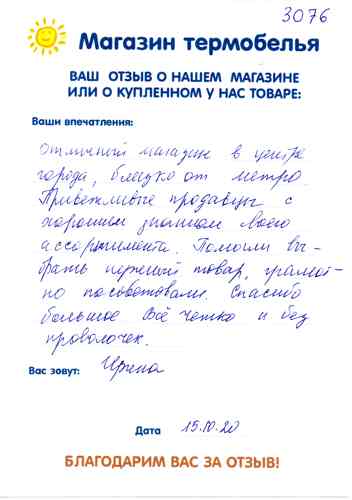 3076
Магазин термобелья
ВАШ ОТЗЫВ О НАШЕМ МАГАЗИНЕ
ИЛИ О КУПЛЕННОМ У НАС ТОВАРЕ:
Ваши впечатления:
Отличный магазин в центре
города, близко от метро.
Приветливые продавцы с
хорошим знанием своего
ассортимента. Помогли вы-
брать нужный товар, грамот-
но посоветовали. Спасибо
большое. Всё четко и без
проволочек.
Вас зовут: Ирина
Дата 15.10.20
БЛАГОДАРИМ ВАС ЗА ОТЗЫВ!